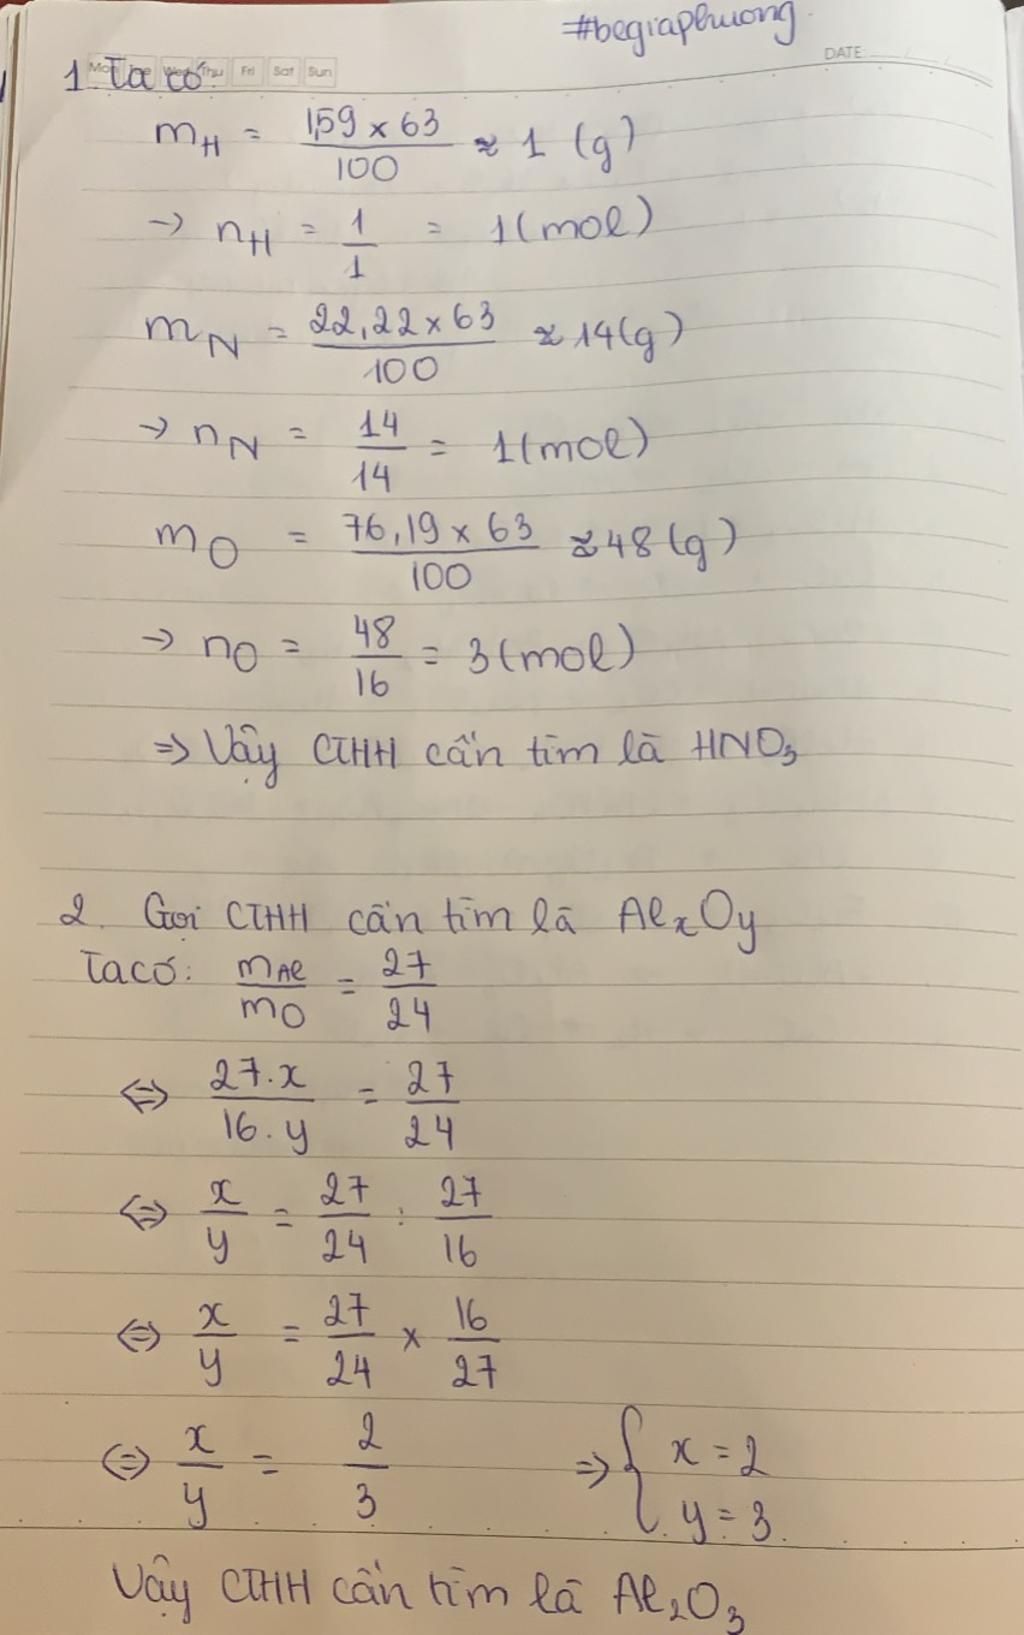 #begiaphuong
DATE:
Mon Tue Wed Thu Fri Sat Sun
1. Ta có
mH = 1,59 x 63 / 100 ≈ 1 (g)
→ nH = 1/1 = 1 (mol)
mN = 22,22 x 63 / 100 ≈ 14 (g)
→ nN = 14/14 = 1 (mol)
mO = 76,19 x 63 / 100 ≈ 48 (g)
→ nO = 48/16 = 3 (mol)
=> Vậy CTHH cần tìm là HNO₃
2. Gọi CTHH cần tìm là AlₓOy
Ta có: mAl/mO = 27/24
⇔ 27.x / 16.y = 27/24
⇔ x/y = 27/24 : 27/16
⇔ x/y = 27/24 x 16/27
⇔ x/y = 2/3 => { x = 2
y = 3.
Vậy CTHH cần tìm là Al₂O₃